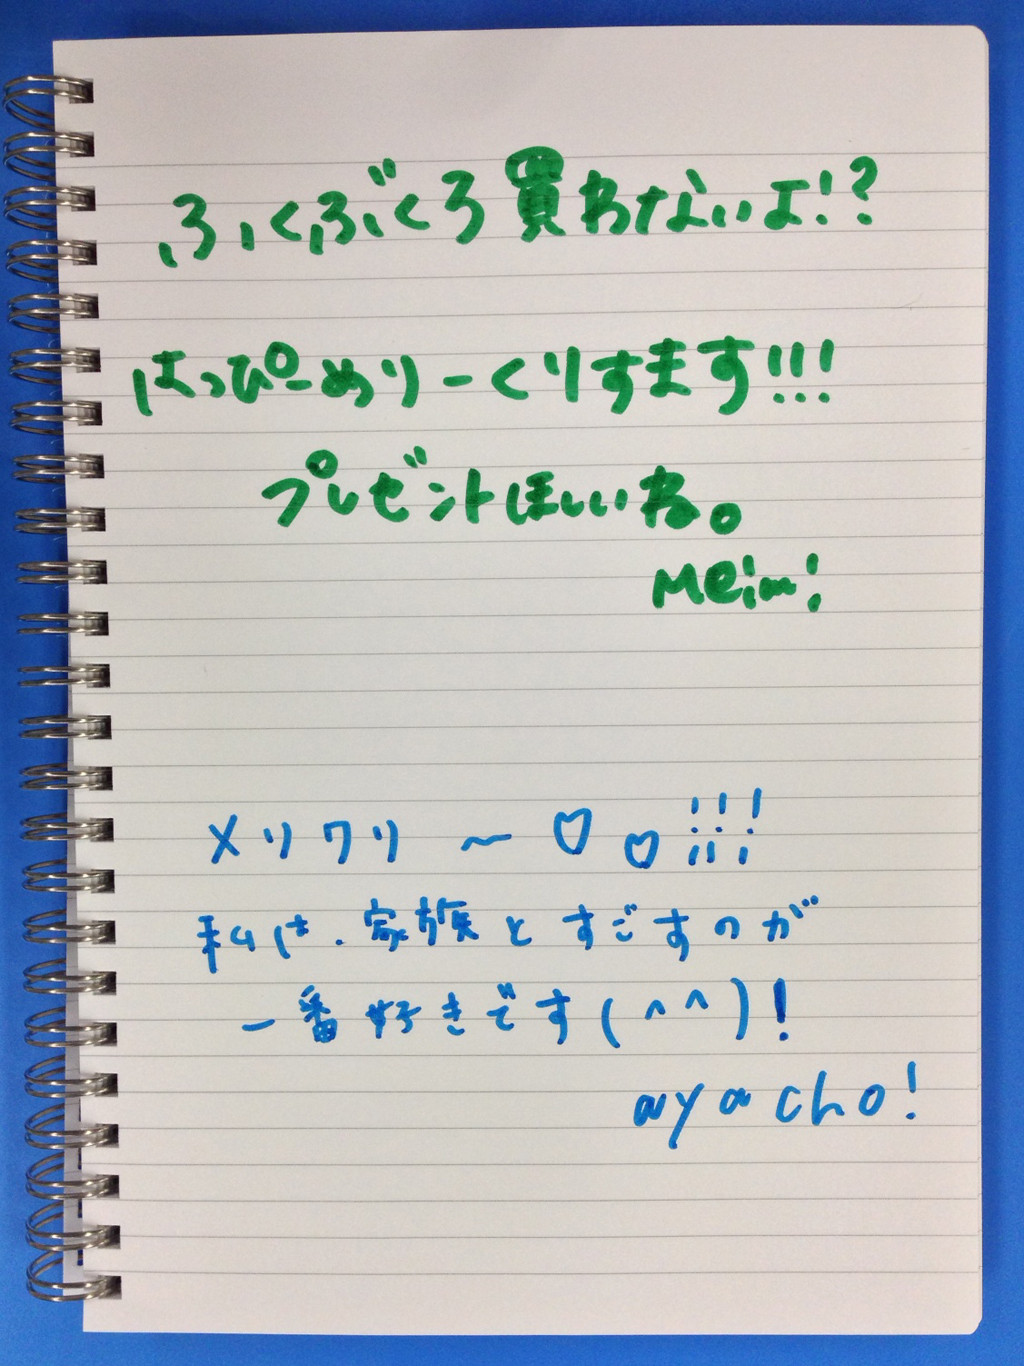 ふくぶくろ買わないよ!?
はっぴーめりーくりすます!!!
プレゼントほしいね。
Meimi
メリクリ〜♡♡!!!
私は、家族とすごすのが
一番好きです(^^)!
ayacho!